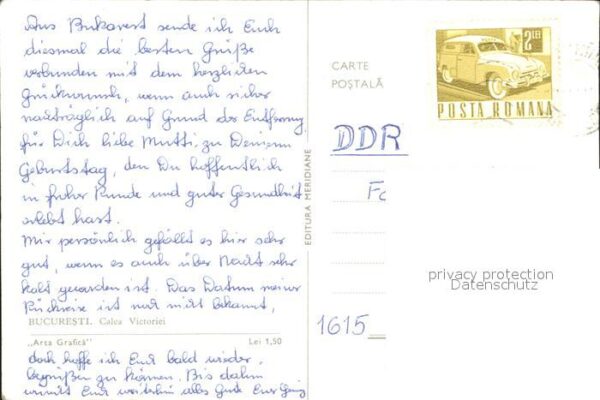 Aus Bukarest sende ich Euch
diesmal die besten Grüße
verbunden mit dem herzlichen
Glückwunsch, wenn auch sicher
nachträglich auf Grund der Entfernung,
für Dich liebe Mutti zu Deinem
Geburtstag, den Du hoffentlich
in froher Runde und guter Gesundheit
erlebt hast.
Mir persönlich gefällt es hier sehr
gut, wenn es auch über Nacht sehr
kalt geworden ist. Das Datum meiner
Rückreise ist noch nicht bekannt,
BUCUREŞTI. Calea Victoriei
„Arta Grafică" Lei 1,50
doch hoffe ich Euch bald wieder
begrüßen zu können. Bis dahin
wünscht Euch weiterhin alles Gute Euer
EDITURA MERIDIANE
CARTE
POŞTALĂ
2 LEI
POSTA ROMANA
DDR
Fa
privacy protection
Datenschutz
1615